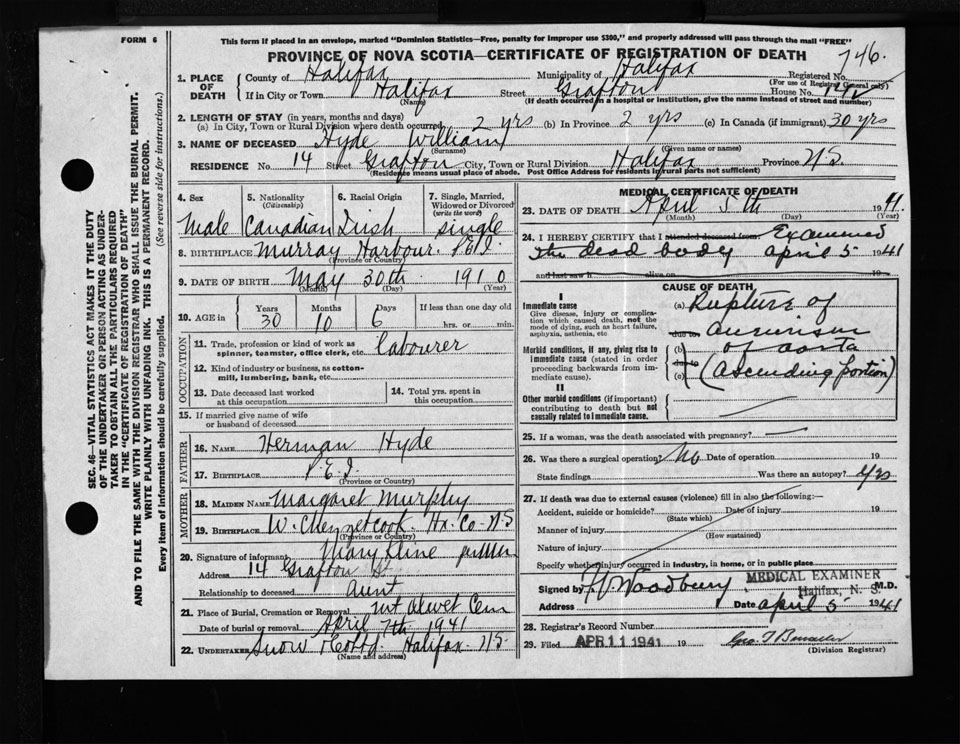 FORM 6
This form if placed in an envelope, marked "Dominion Statistics—Free, penalty for improper use $300," and properly addressed will pass through the mail "FREE"
PROVINCE OF NOVA SCOTIA—CERTIFICATE OF REGISTRATION OF DEATH
746.
1. PLACE OF DEATH
County of Halifax Municipality of Halifax Registered No.
(For use of Registrar General only)
If in City or Town Halifax Street Grafton House No. 14
(Name) (If death occurred in a hospital or institution, give the name instead of street and number)
2. LENGTH OF STAY (in years, months and days)
(a) In City, Town or Rural Division where death occurred 2 yrs (b) In Province 2 yrs (c) In Canada (if immigrant) 30 yrs
3. NAME OF DECEASED Hyde William
(Surname) (Given name or names)
RESIDENCE No. 14 Street Grafton City, Town or Rural Division Halifax Province N.S.
(Residence means usual place of abode. Post Office Address for residents in rural parts not sufficient)
4. Sex 5. Nationality (Citizenship) 6. Racial Origin 7. Single, Married, Widowed or Divorced (write the word)
Male Canadian Irish single
8. BIRTHPLACE Murray Harbour. P.E.I
(Province or Country)
9. DATE OF BIRTH May 30th 1910
(Month) (Day)
10. AGE in Years Months Days If less than one day old
30 10 6 hrs. or min.
OCCUPATION
11. Trade, profession or kind of work as spinner, teamster, office clerk, etc. labourer
12. Kind of industry or business, as cotton-mill, lumbering, bank, etc.
13. Date deceased last worked at this occupation
14. Total yrs. spent in this occupation
15. If married give name of wife or husband of deceased
FATHER
16. NAME Herman Hyde
17. BIRTHPLACE P.E.I.
(Province or Country)
MOTHER
18. MAIDEN NAME Margaret Murphy
19. BIRTHPLACE W. Chezzetcook. Hx. Co. N-S
(Province or Country)
20. Signature of informant Mary Kline
Address 14 Grafton St
Relationship to deceased Aunt
21. Place of Burial, Cremation or Removal Mt Olivet Cem
Date of burial or removal April 7th 1941
22. UNDERTAKER Snow & Co Ltd. Halifax N-S.
(Name and address)
MEDICAL CERTIFICATE OF DEATH
23. DATE OF DEATH April 5th 1941.
(Month) (Day) (Year)
24. I HEREBY CERTIFY that I attended deceased from Examined
the dead body april 5 1941
and last saw h alive on 19
CAUSE OF DEATH
I
Immediate cause
Give disease, injury or complication which caused death, not the mode of dying, such as heart failure, asphyxia, asthenia, etc
(a) Rupture of
due to aneurism
Morbid conditions, if any, giving rise to immediate cause (stated in order proceeding backwards from immediate cause).
(b) of aorta
due to
(c) (Ascending portion)
II
Other morbid conditions (if important) contributing to death but not causally related to immediate cause.
25. If a woman, was the death associated with pregnancy?
26. Was there a surgical operation? No Date of operation 19
State findings Was there an autopsy? Yes
27. If death was due to external causes (violence) fill in also the following:—
Accident, suicide or homicide? Date of injury 19
(State which)
Manner of injury
(How sustained)
Nature of injury
Specify whether injury occurred in industry, in home, or in public place
Signed by Woodbury MEDICAL EXAMINER M.D.
Halifax, N. S.
Address Date april 5 1941
28. Registrar's Record Number
29. Filed APR 11 1941 19
(Division Registrar)
SEC. 46—VITAL STATISTICS ACT MAKES IT THE DUTY
OF THE UNDERTAKER OR PERSON ACTING AS UNDER-
TAKER TO OBTAIN ALL THE PARTICULARS REQUIRED
IN THE "CERTIFICATE OF REGISTRATION OF DEATH"
AND TO FILE THE SAME WITH THE DIVISION REGISTRAR WHO SHALL ISSUE THE BURIAL PERMIT.
WRITE PLAINLY WITH UNFADING INK. THIS IS A PERMANENT RECORD.
Every item of information should be carefully supplied. (See reverse side for instructions.)